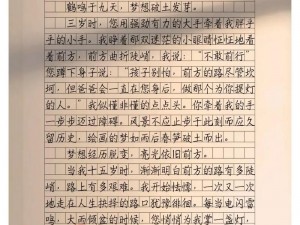 鹤鸣于九天，梦想破土发芽。
三岁时，您用强劲有力的大手牵着我胖乎
乎的小手。我睁着那双迷茫的小眼睛怔怔地看
着前方，前方曲折陡峭，我说：“不敢前行”
您蹲下身子说：“孩子别怕，前方的路尽管坎
坷，但爸爸会一直在您身后，做那个为你提灯
的人。”我似懂非懂的点点头。你牵着我的手
一步步迈过障碍，风景不应止步于此刻而应久
留历史，绘画的梦如雨后春笋破土而出。
梦想经历脱变，亮光依旧前方。
当我十五岁时，渐渐明白前方的路有多陡
峭，路上有多艰难。我开始怯懦，一次又一次
地走在人生抉择的路口犹豫徘徊。每当电闪雷
鸣，大雨倾盆的时候，您悄悄为我掌一盏灯，